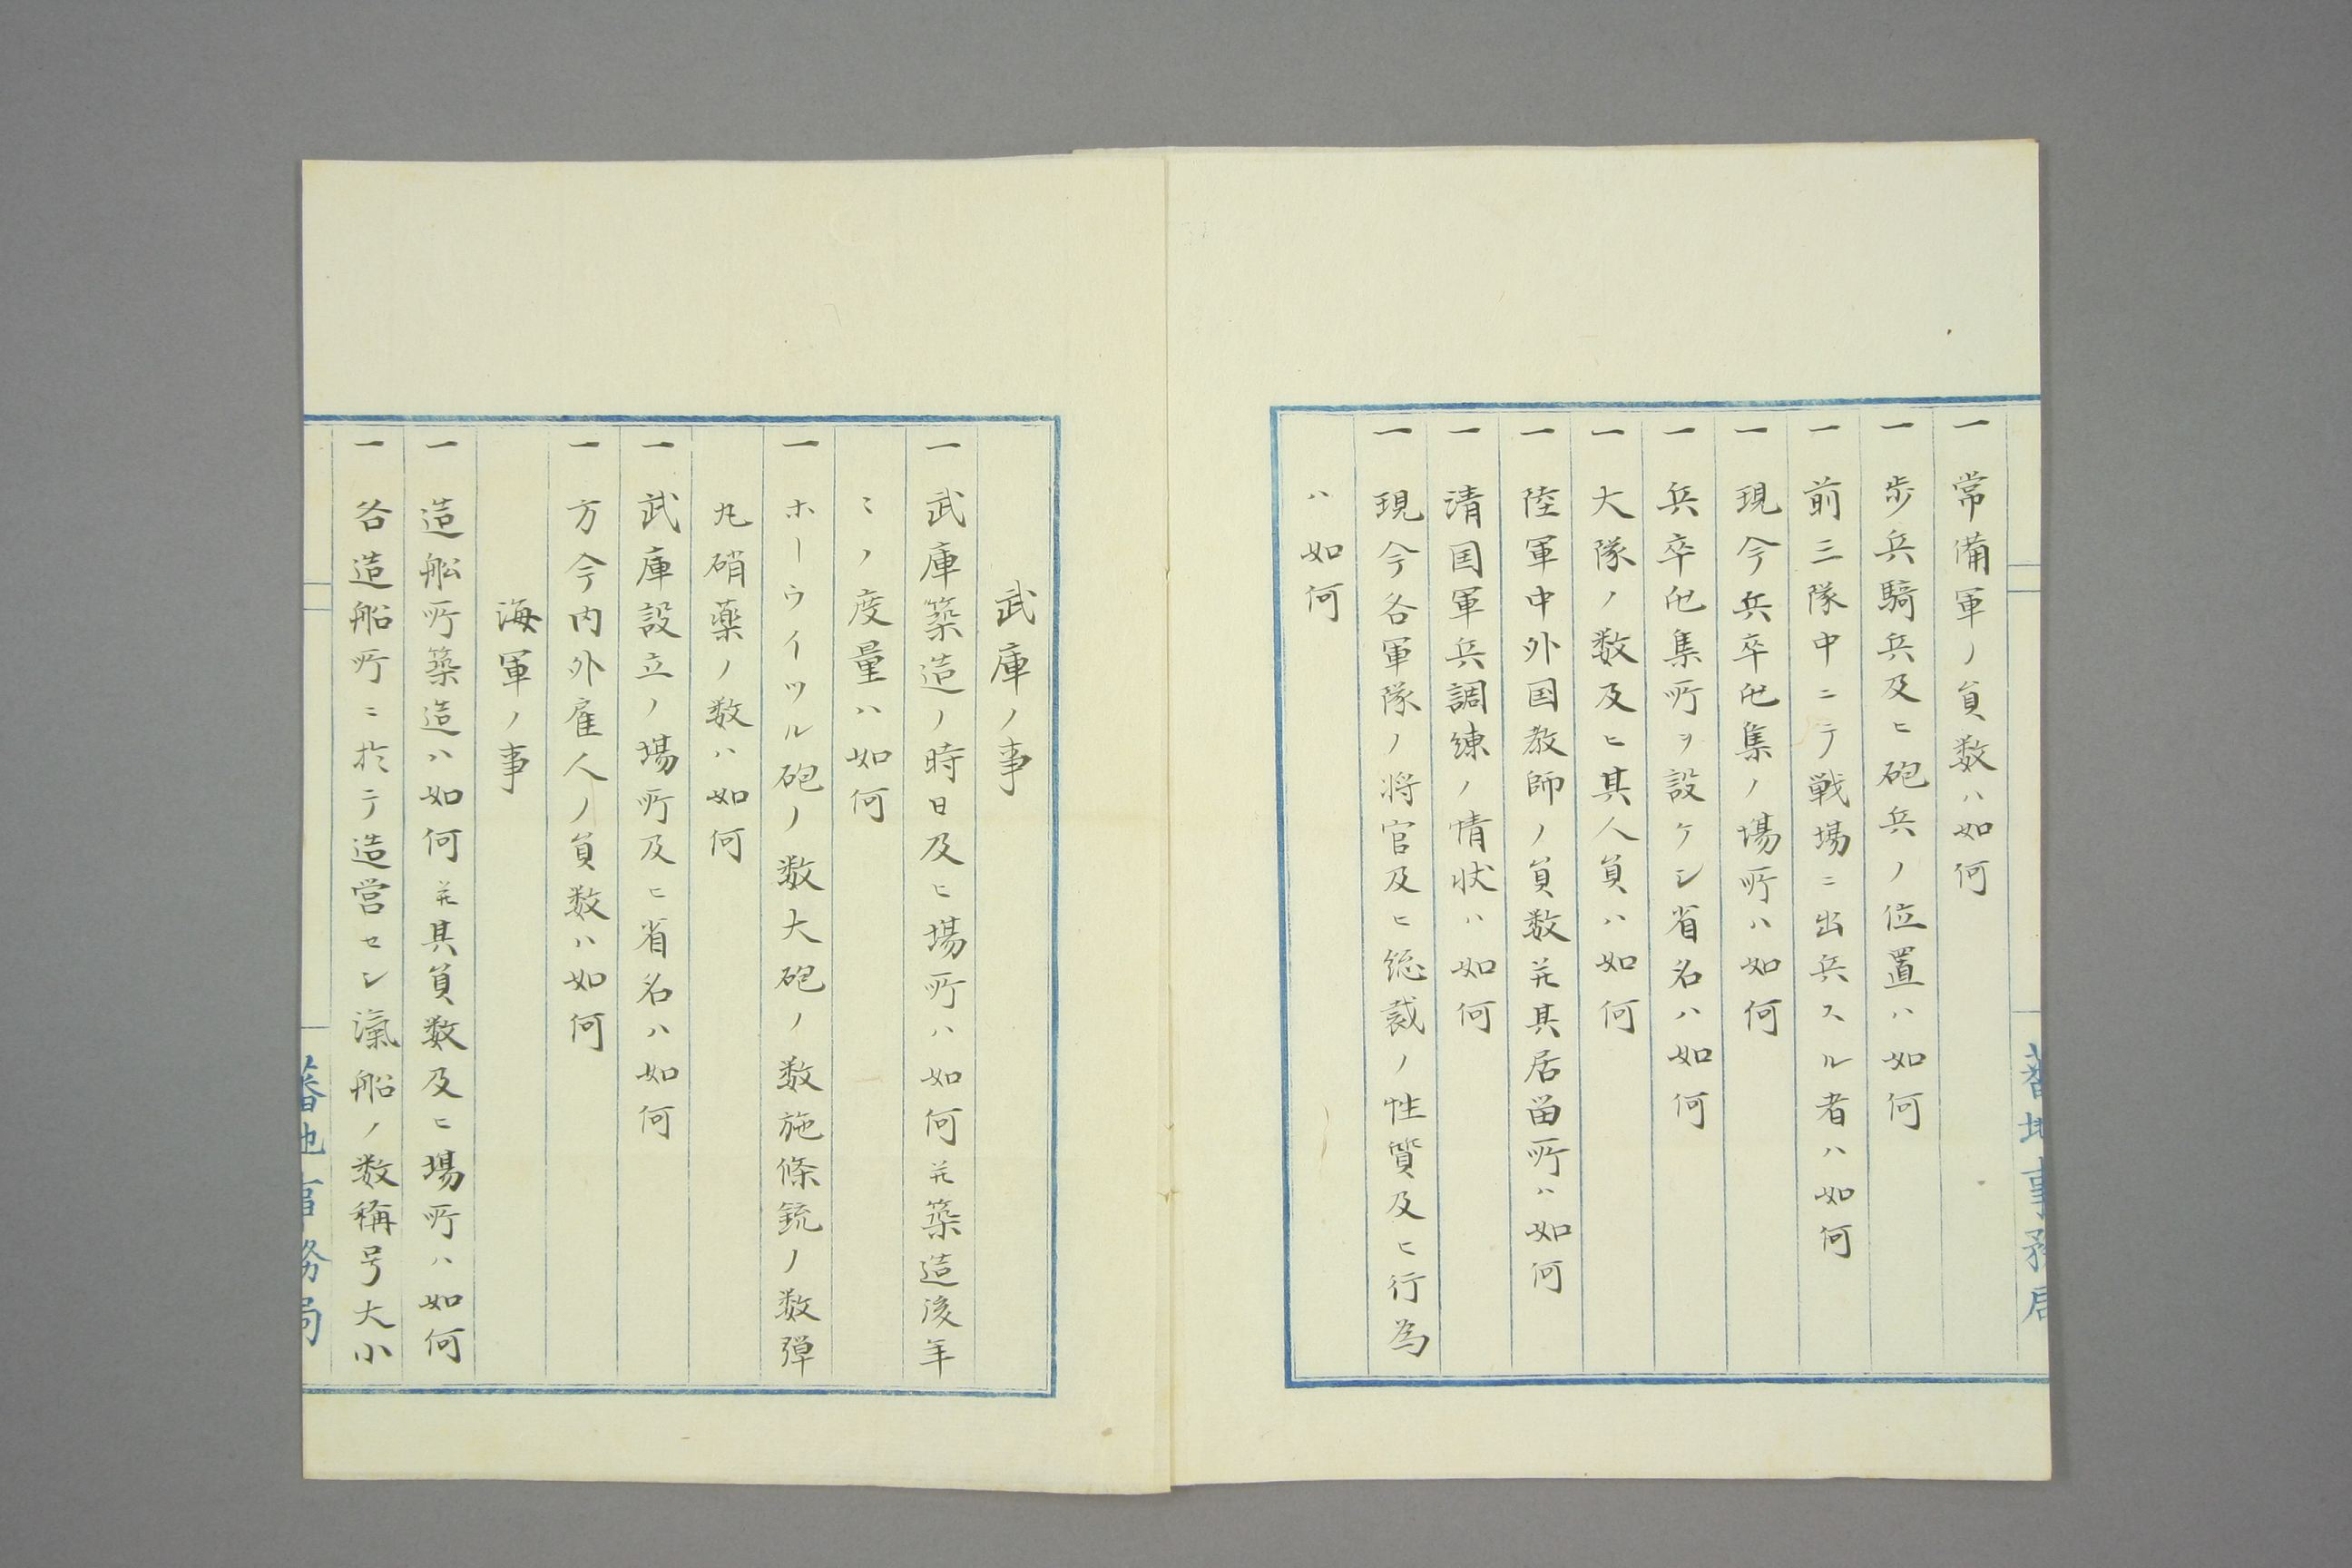 蕃地事務局
一常備軍ノ員数ハ如何
一歩兵騎兵及ヒ砲兵ノ位置ハ如何
一前三隊中ニテ戦場ニ出兵スル者ハ如何
一現今兵卒屯集ノ場所ハ如何
一兵卒屯集所ヲ設ケシ省名ハ如何
一大隊ノ数及ヒ其人員ハ如何
一陸軍中外国教師ノ員数并其居留所ハ如何
一清国軍兵調練ノ情状ハ如何
一現今各軍隊ノ将官及ヒ総裁ノ性質及ヒ行為
ハ如何
武庫ノ事
一武庫築造ノ時日及ヒ場所ハ如何并築造後年
ミノ度量ハ如何
一ホーウイツル砲ノ数大砲ノ数施條銃ノ数弾
丸硝薬ノ数ハ如何
一武庫設立ノ場所及ヒ省名ハ如何
一方今内外雇人ノ員数ハ如何
海軍ノ事
一造船所築造ハ如何并其員数及ヒ場所ハ如何
一各造船所ニ於テ造営セシ滊船ノ数稱号大小
蕃地事務局